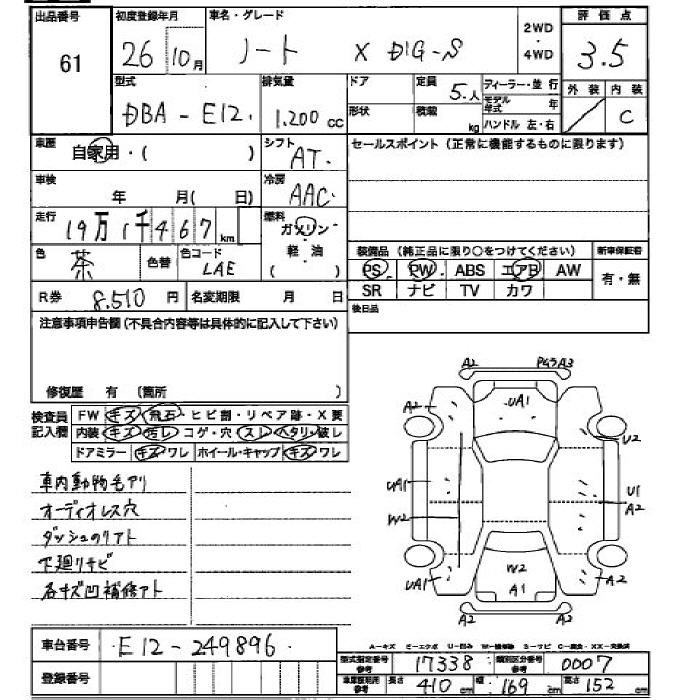 出品番号 初度登録年月 車名・グレード 2WD 評価点
61 26 10月 ノート X DIG-S ・ 4WD 3.5
型式 排気量 ドア 定員 5.人 フィーラー・並行 外装 内装
DBA - E12. 1.200 cc 形状 積載 kg モデル年式 年 C
ハンドル 左・右
車歴 自家用・( ) シフト AT. セールスポイント(正常に機能するものに限ります)
車検 年 月( 日) 冷房 AAC.
走行 19万1千467 km 燃料 ガソリン
色 茶 色替 色コード LAE 軽・油 ( ) 装備品(純正品に限り○をつけてください) 新車保証書
PS PW ABS エアB AW 有・無
R券 8.510 円 名変期限 月 日 SR ナビ TV カワ
注意事項申告欄(不具合内容等は具体的に記入して下さい) 後日品
修復歴 有 (箇所 )
検査員 FW キズ 飛石・ヒビ割・リペア跡・X要
記入欄 内装 キズ 汚レ コゲ・穴 スレ ヘタリ・破レ
ドアミラー キズ ワレ ホイール・キャップ キズ ワレ
A2 A3
A2 UA1 U2
UA1 U1
W2 A2
UA1 W2 A2
A1
A2 A2
車内動物毛アリ
オーディオレス穴
ダッシュのリアト
下廻リサビ
各キズ凹補修アト
車台番号 E12-249896.
登録番号
A-キズ E-エクボ U-凹み S-サビ
型式指定番号 参考 17338 類別区分番号 参考 0007
長さ 410 cm 幅 169 cm 高さ 152 cm